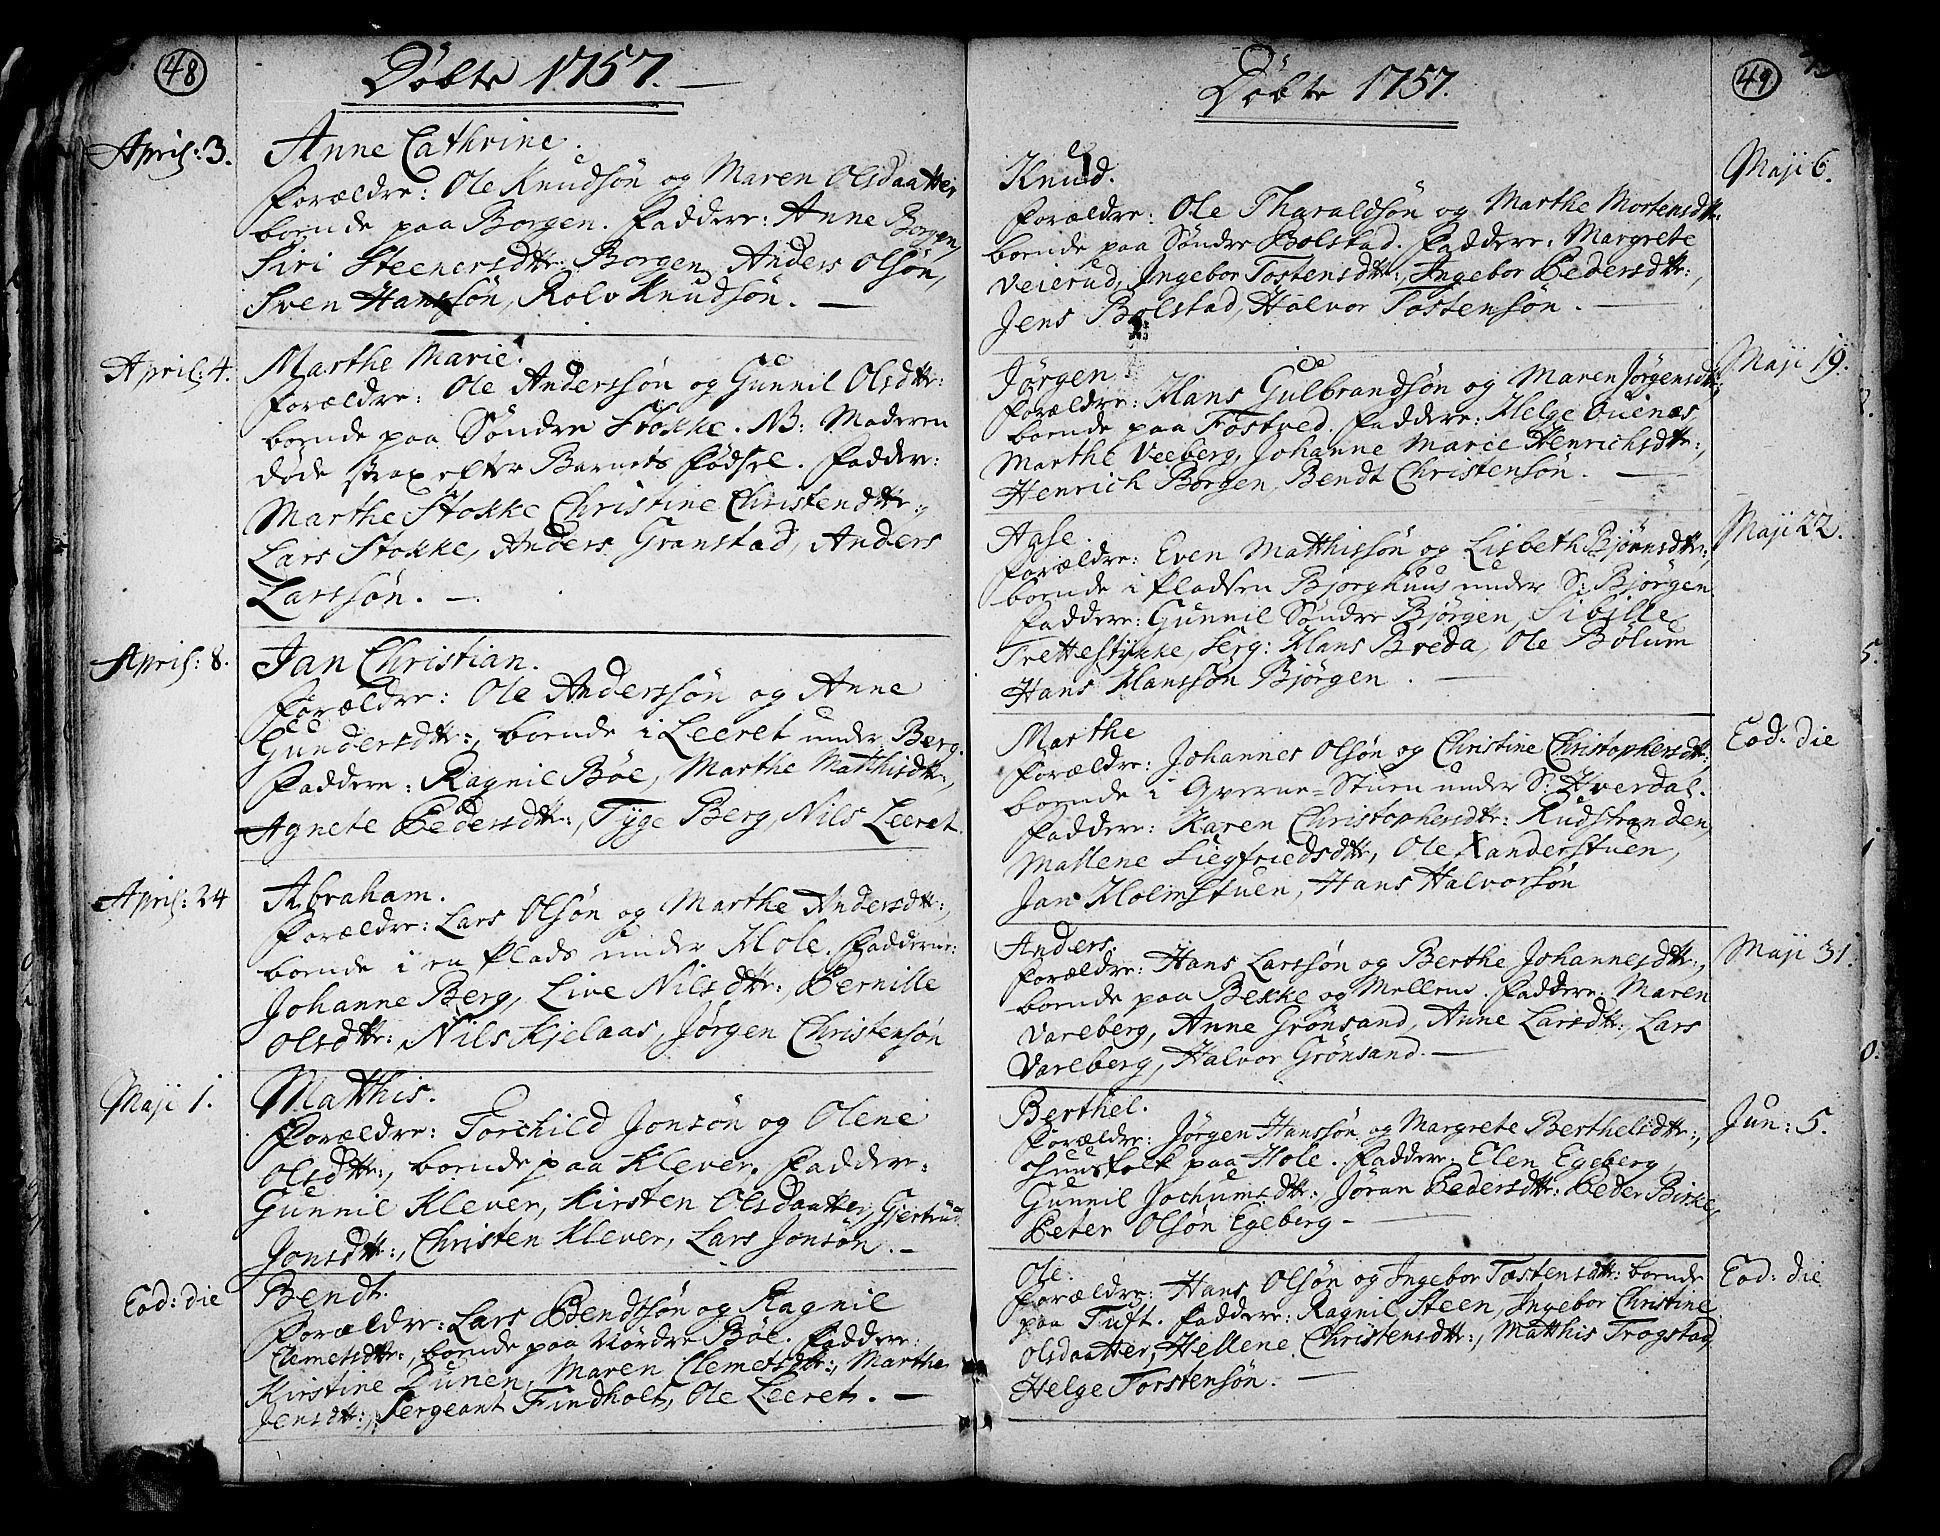 48
Döbte 1757.
April: 3.
Anne Cathrine.
Forældre: Ole Knudsön og Maren Olsdaatter,
boende paa Borgen. Faddere: Anne Borgen,
Siri Steenersdttr: Borgen, Anders Olsön,
Sven Hansön, Rolv Knudsön.
April: 4.
Marthe Marie.
Forældre: Ole Anderssön og Gunnil Olsdttr:
boende paa Söndre Stokke. NB: Moderen
döde strax efter Barnets Födsel. Faddere:
Marthe Stokke Christine Christendttr:,
Lars Stokke, Anders Granstad, Anders
Larssön.
April: 8.
Jan Christian.
Forældre: Ole Anderssön og Anne
Gundersdttr:, boende i Leeret under Berg.
Faddere: Ragnil Böe, Marthe Matthisdttr:,
Agnete Pedersdttr:, Tyge Berg, Nils Leeret.
April: 24
Abraham.
Forældre: Lars Olsön og Marthe Andersdttr:,
boende i en Plads under Hole. Fadderne:
Johanne Berg, Live Nilsdttr:, Pernille
Olsdttr:, Nils Kjelaas, Jörgen Christensön
Maji 1.
Matthis.
Forældre: Torchild Jonsön og Olene
Olsdttr:, boende paa Klever. Faddere:
Gunnil Klever, Kirsten Olsdaatter, Gjertrud
Jonsdttr:, Christen Klever, Lars Jonsön.
Eod: die
Bendt.
Forældre: Lars Bendtsön og Ragnil
Clemetsdttr:, boende paa Nordre Böe. Faddere:
Kirstine Dunen, Maren Clemetsdttr:, Marthe
Jensdttr:, Sergeant Findholt, Ole Leeret.
49
Döbte 1757.
Maji 6.
Knud.
Forældre: Ole Tharaldsön og Marthe Mortensdttr:
boende paa Söndre Bolstad. Faddere: Margrete
Veierud, Ingebor Tostensdttr:, Ingebor Pedersdttr:,
Jens Bolstad, Halvor Tostensön.
Maji 19.
Jörgen
Forældre: Hans Gulbrandsön og Maren Jörgensdttr:,
boende paa Fostved. Faddere: Helge Buenæs
Marthe Veeberg, Johanne Marie Henrichsdttr:,
Henrich Borgen, Bendt Christensön.
Maji 22.
Aase.
Forældre: Even Matthissön og Lisbeth Bjönnsdttr:,
boende i Pladsen Bjorghuus under S: Björgen
Faddere: Gunnil Söndre Björgen, Sibille
Trettestykke, Serg: Hans Breda, Ole Bolum
Hans Hanssön Björgen.
Eod: die
Marthe
Forældre: Johannes Olsön og Christine Christophersdttr:,
boende i Qverne-Stuen under S: Hverdal.
Faddere: Karen Christophersdttr: Rudstranden,
Mallene Siegfriedsdttr, Ole Xanderstuen,
Jan Holmstuen, Hans Halvorsön
Maji 31.
Anders.
Forældre: Hans Larssön og Berthe Johannesdttr:,
boende paa Bekke og Mellens. Faddere: Maren
Varlberg, Anne Grönsand, Anne Larsdttr:, Lars
Varlberg, Halvor Grönsand.
Jun: 5.
Berthel.
Forældre: Jörgen Hanssön og Margrete Berthelsdttr:,
Huusfolk paa Hole. Faddere: Elen Egeberg,
Gunnil Jochumsdttr:, Jöran Pedersdttr: Peder Birke,
Peter Olsön Egeberg
Eod: die
Ole.
Forældre: Hans Olsön og Ingebor Tostensdttr: boende
paa Tuft. Faddere: Ragnil Steen, Ingebor Christine
Olsdaatter, Hellene Christensdttr:, Matthis Trogstad,
Helge Torstensön.